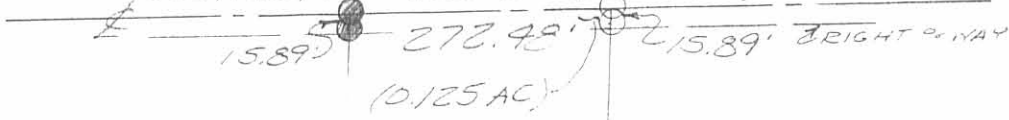 ℄
15.89' 272.48' 15.89' RIGHT OF WAY
(0.125 AC)